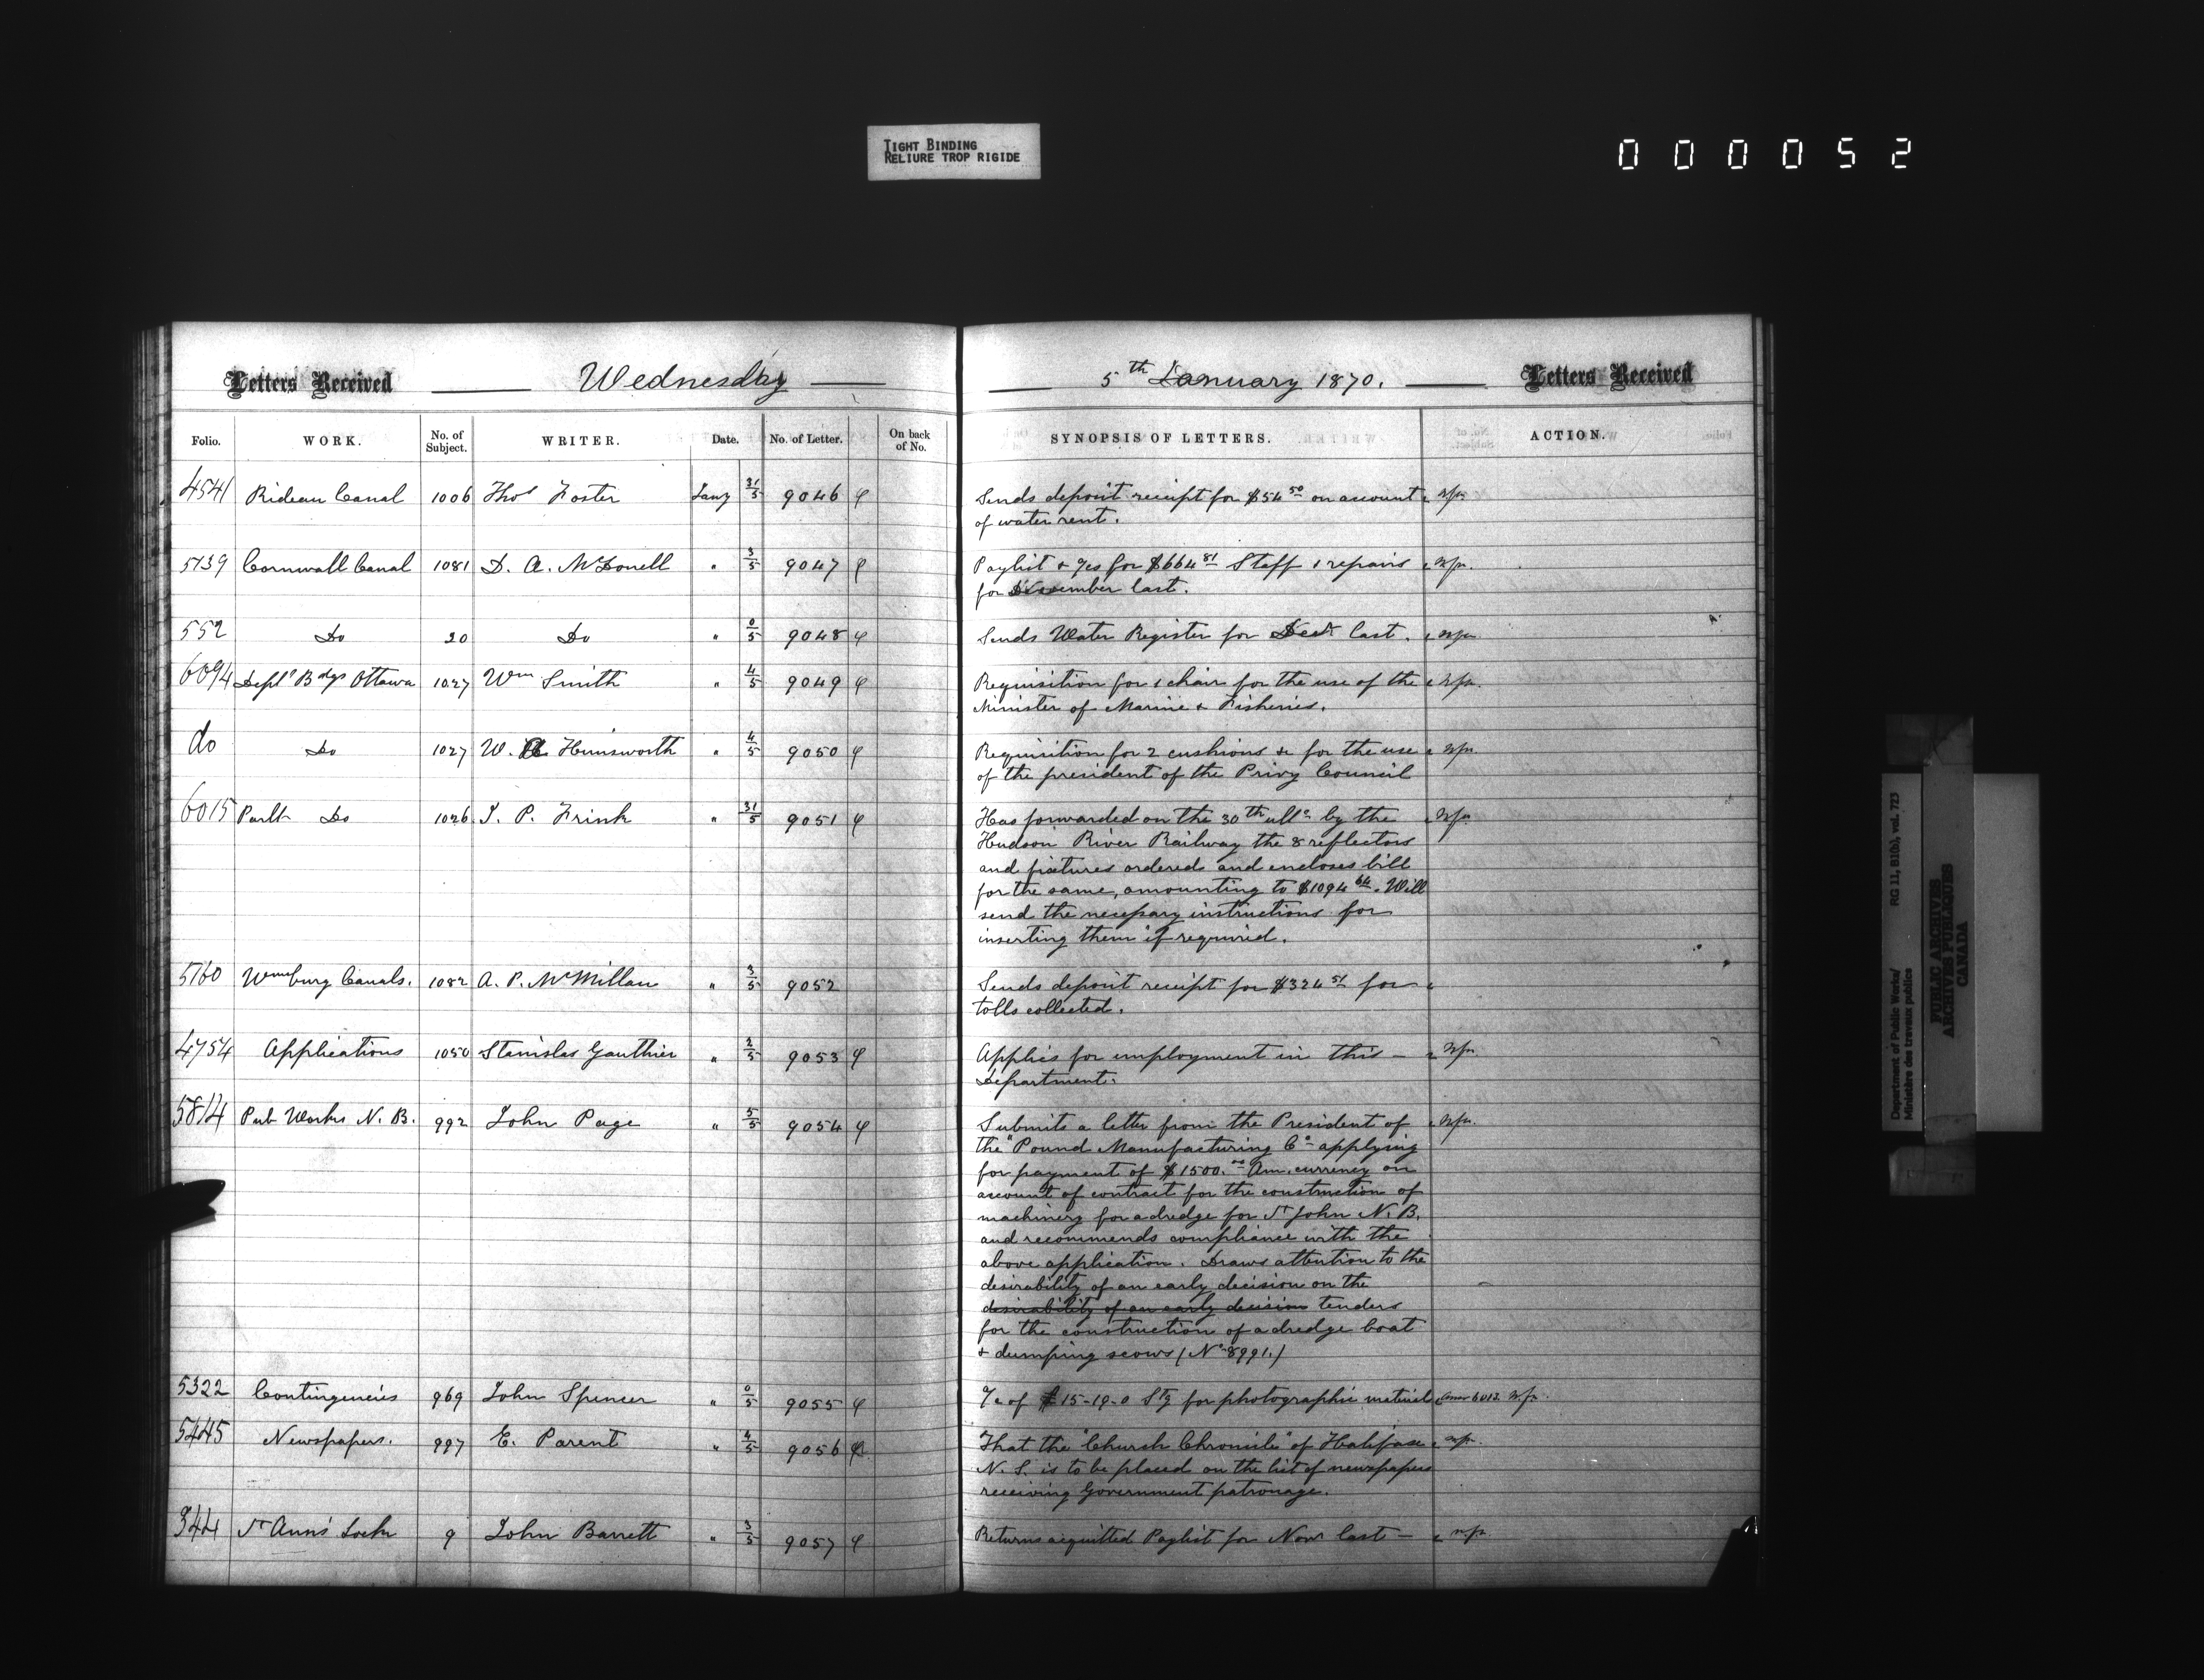 TIGHT BINDING
RELIURE TROP RIGIDE
000052
Letters Received Wednesday
Folio. WORK. No. of Subject. WRITER. Date. No. of Letter. On back of No.
4541 Rideau Canal 1006 Thos Foster Jany 31/5 9046
5739 Cornwall Canal 1081 D. A. McDonell " 3/5 9047
552 Do 20 Do " 0/5 9048
6094 Deptl Bdgs Ottawa 1027 Wm Smith " 4/5 9049
do Do 1027 W. A. Himsworth " 4/5 9050
6015 Parlt Do 1026 I. P. Frink " 31/5 9051
5760 Wmsburg Canals. 1082 A. P. McMillan " 3/5 9052
4754 Applications 1050 Stanislas Gauthier " 2/5 9053
5814 Pub Works N. B. 992 John Page " 5/5 9054
5322 Contingencies 969 John Spencer " 0/5 9055
5445 Newspapers. 997 E. Parent " 4/5 9056
344 St Ann's Lock 9 John Barrett " 3/5 9057
5th January 1870. Letters Received
SYNOPSIS OF LETTERS. ACTION.
Sends deposit receipt for $54 50 on account
of water rent.
Paylist & for $664 81 Staff & repairs
for December last.
Sends Water Register for Decr last.
Requisition for 1 chair for the use of the
Minister of Marine & Fisheries.
Requisition for 2 cushions &c for the use
of the president of the Privy Council
Has forwarded on the 30th ulto by the
Hudson River Railway the 8 reflectors
and fixtures ordered and encloses bill
for the same, amounting to $1094 64. Will
send the necessary instructions for
inserting them if required.
Sends deposit receipt for $324 51 for
tolls collected.
Applies for employment in this —
Department.
Submits a letter from the President of
the "Pound Manufacturing Co applying
for payment of $1500.00 Am. currency on
account of contract for the construction of
machinery for a dredge for St John N. B.
and recommends compliance with the
above application. Draws attention to the
desirability of an early decision on the
desirability of an early decision tenders
for the construction of a dredge boat
& dumping scows (No 8991.)
of £15-19-0 Stg for photographic material
That the "Church Chronicle" of Halifax
N. S. is to be placed on the list of newspapers
receiving Government patronage.
Returns acquitted Paylist for Novr last —
Department of Public Works/ RG 11, B1(b), vol. 723
Ministère des travaux publics
PUBLIC ARCHIVES
ARCHIVES PUBLIQUES
CANADA